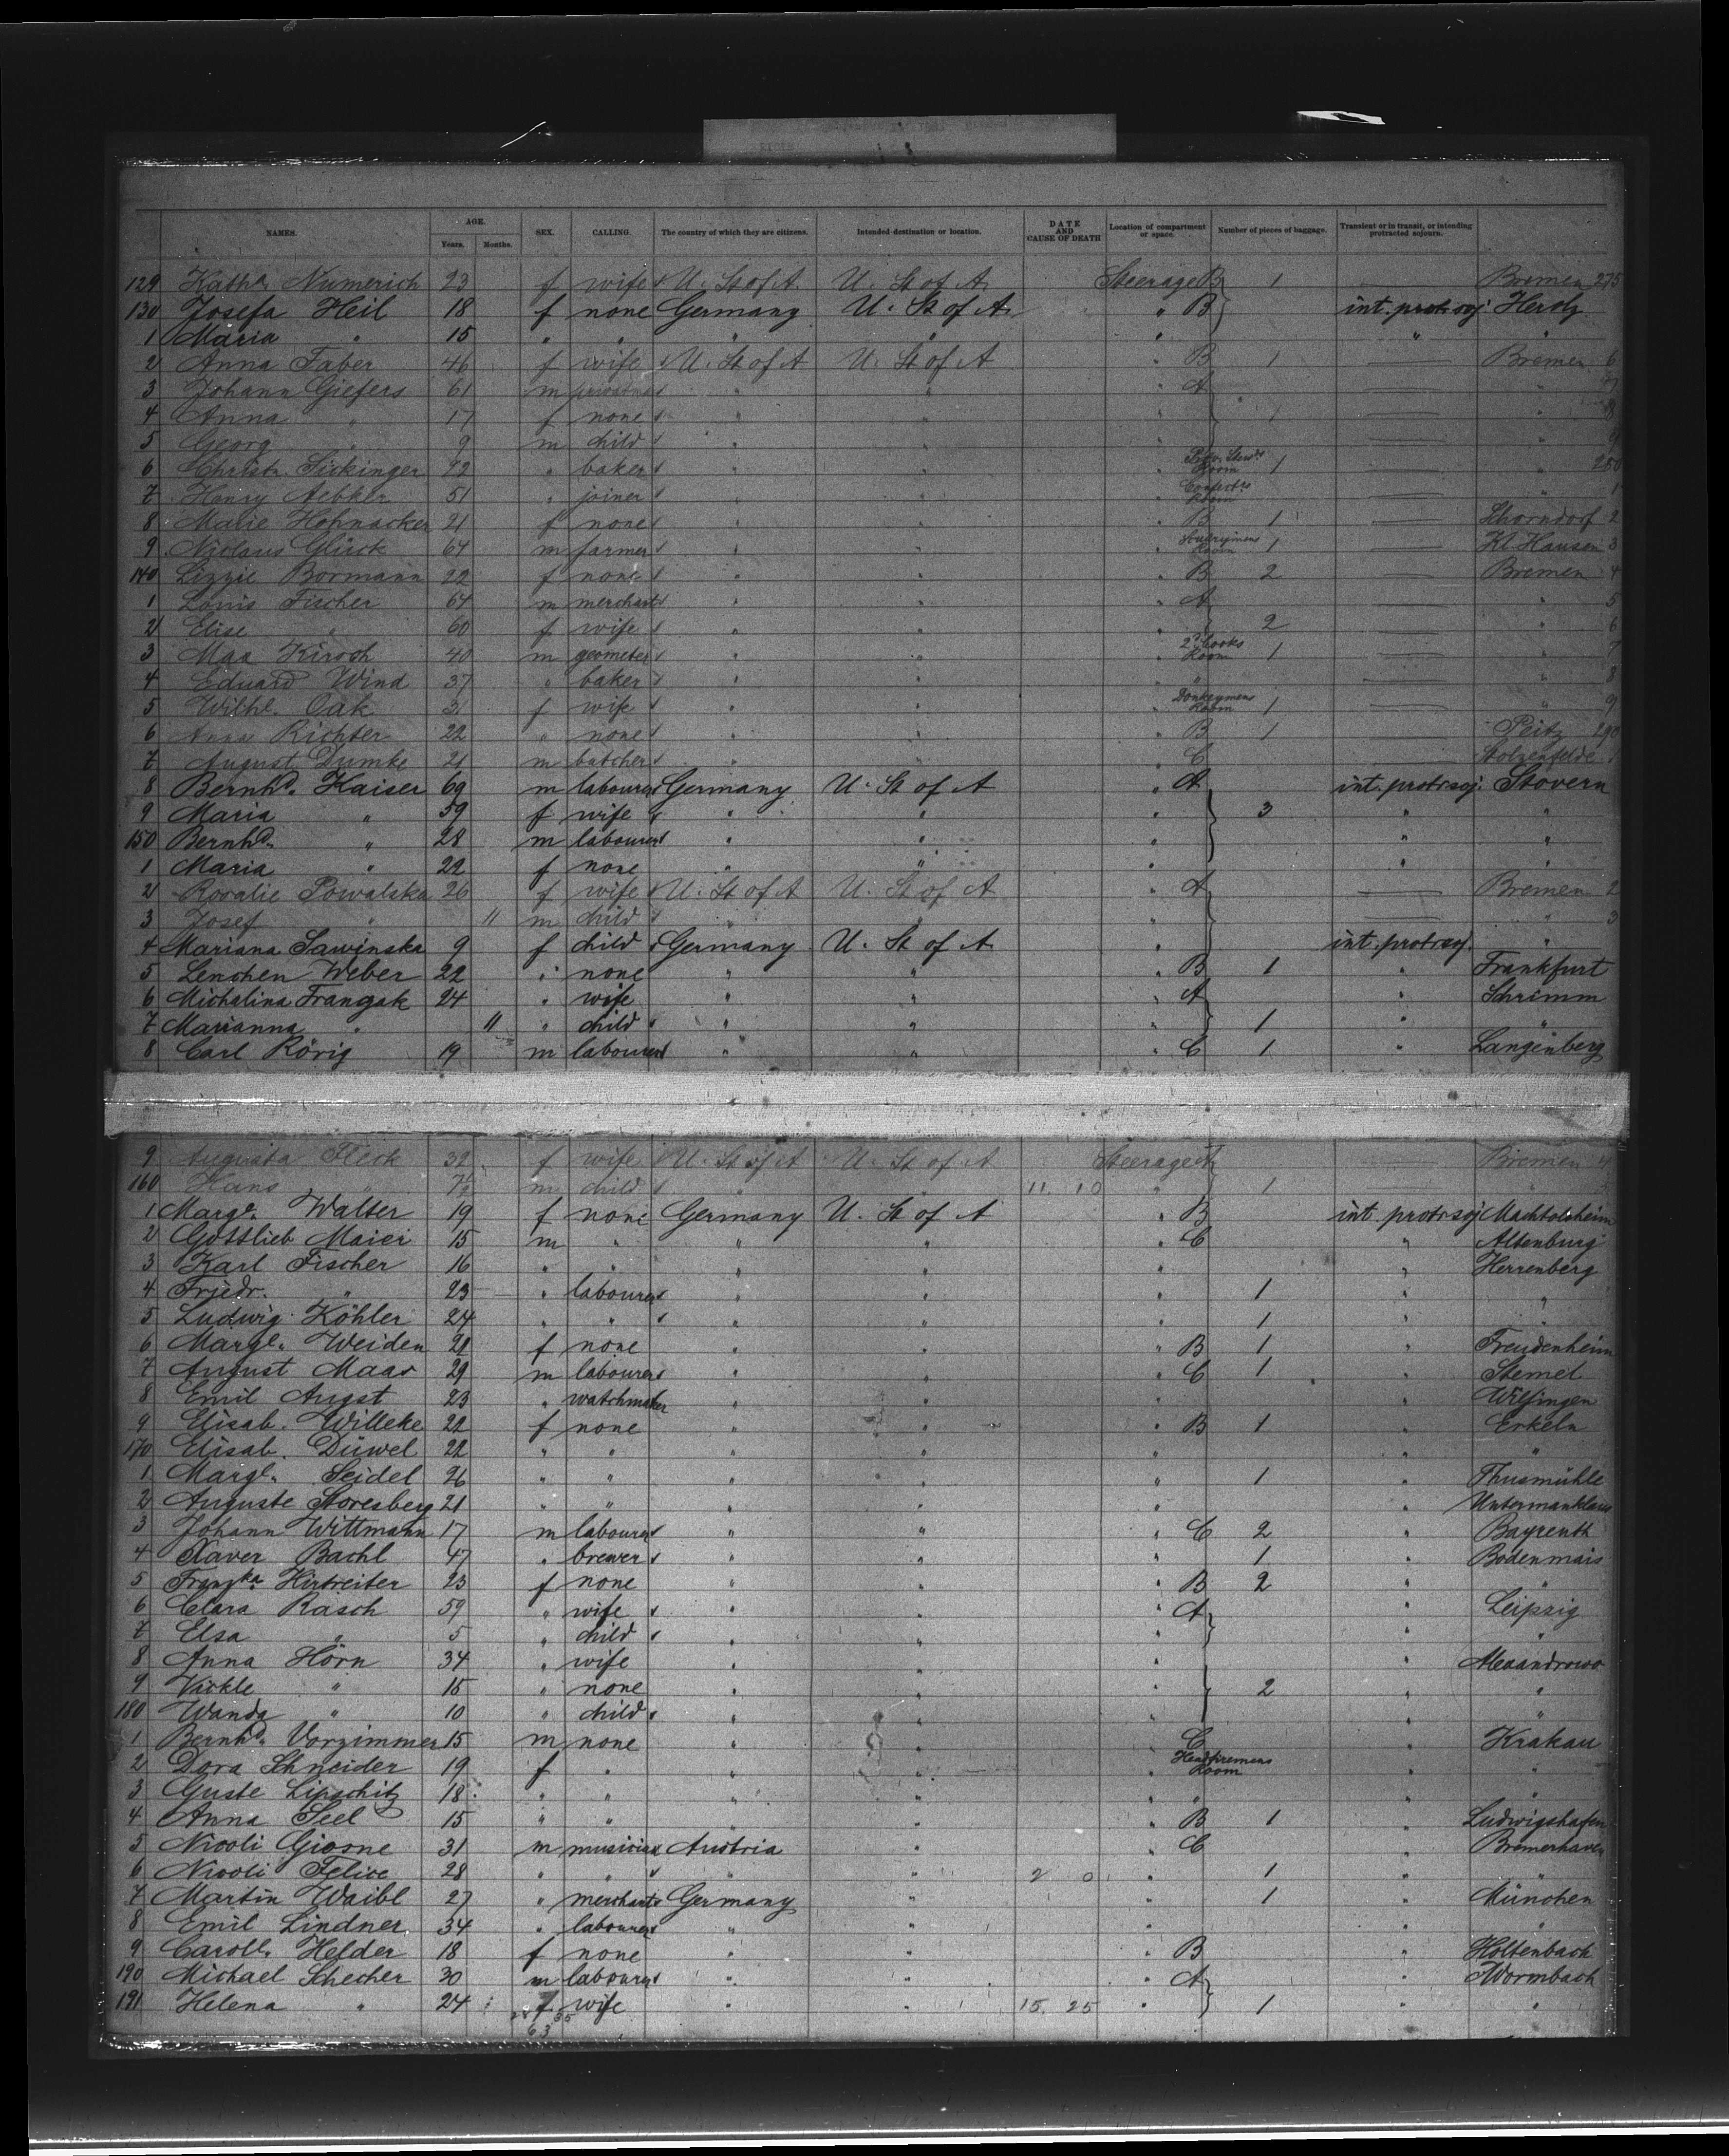 NAMES. AGE. Years. Months. SEX. CALLING. The country of which they are citizens. Intended destination or location. DATE AND CAUSE OF DEATH Location of compartment or space. Number of pieces of baggage. Transient or in transit, or intending protracted sojourn.
129 Kathe. Numerich 23 f wife U. St of A. U. St of A. Steerage B 1 Bremen 275
130 Josefa Heil 18 f none Germany U. St of A. " B int. prot. soj.
1 Maria " 15 " " " " " " "
2 Anna Faber 46 f wife U. St of A U. St of A " B 1 Bremen 6
3 Johann Giefers 61 m " " " A "
4 Anna " 17 f none " " " 1 "
5 Georg " 9 m child " " " "
6 Christn. Sickinger 22 " baker " " " Room 1 " 280
7 Henry Aebker 51 " joiner " " " Room " 1
8 Marie Hohnacker 21 f none " " " B 1 Schorndorf 2
9 Niclaus Glück 64 m farmer " " " Room 1 Kl. Hausen 3
140 Lizzie Bormann 22 f none " " " B 2 Bremen 4
1 Louis Fischer 64 m merchant " " " A " 5
2 Elise " 60 f wife " " " 2 " 6
3 Max Kirsch 40 m geometer " " " 2d Cooks Room 1 " 7
4 Eduard Wind 37 " baker " " " " " 8
5 Wilhe. Oak 31 f wife " " " Donkeymens Room 1 " 9
6 Anna Richter 22 " none " " " B 1 Peitz 290
7 August Dumke 21 m butcher " " " C Stolzenfelde 1
8 Bernhd. Kaiser 69 m labourer Germany U. St of A " A int. prot. soj. Stovern
9 Maria " 59 f wife " " " 3 " "
150 Bernhd. " 28 m labourer " " " " "
1 Maria " 22 f none " " " " "
2 Rosalie Powalska 26 f wife U. St of A U. St of A " A Bremen 2
3 Josef " 11 m child " " " " 3
4 Mariana Sawinska 9 f child Germany U. St of A " int. prot. soj. "
5 Lenchen Weber 22 " none " " " B 1 " Frankfurt
6 Michalina Frangak 24 " wife " " " A " Schrimm
7 Marianna " 11 " child " " " 1 " "
8 Carl Rörig 19 m labourer " " " C 1 " Langenberg
9 Augusta Fleck 32 f wife U. St of A U. St of A Steerage A Bremen 4
160 Hans " m child " " 11. 10 " 1 "
1 Margt. Walter 19 f none Germany U. St of A " B int. prot. soj. Machtolsheim
2 Gottlieb Maier 15 m " " " " C " Altenburg
3 Karl Fischer 16 " " " " " " Herrenberg
4 Friedr. " 23 " labourer " " " 1 " "
5 Ludwig Köhler 24 " " " " " 1 " "
6 Margt. Weiden 21 f none " " " B 1 " Freudenheim
7 August Maas 29 m labourer " " " C 1 " Stemel
8 Emil Angst 23 " watchmaker " " " " Wilfingen
9 Elisab. Willeke 22 f none " " " B 1 " Erkeln
170 Elisab. Düwel 22 " " " " " " "
1 Margt. Seidel 26 " " " " " 1 " Thusmühle
2 Auguste Storesberg 21 " " " " " "
3 Johann Wittmann 17 m labourer " " " C 2 " Bayreuth
4 Xaver Bachl 47 " brewer " " " 1 " Bodenmais
5 Franzka. Hirtreiter 23 f none " " " B 2 " "
6 Clara Rasch 59 " wife " " " A " Leipzig
7 Elsa " 5 " child " " " " "
8 Anna Hörn 34 " wife " " " " Alexandrowo
9 Vickle " 15 " none " " " 2 " "
180 Wanda " 10 " child " " " " "
1 Bernhd. Vorzimmer 15 m none " " " C " Krakau
2 Dora Schneider 19 f " " " " Headfiremens Room " "
3 Guste Lipschitz 18 " " " " " " " "
4 Anna Seel 15 " " " " " B 1 " Ludwigshafen
5 Nicoli Giosne 31 m musician Austria " " C " Bremerhaven
6 Nicoli Felice 28 " " " " 2 0 " 1 " "
7 Martin Waibl 27 " merchant Germany " " 1 " München
8 Emil Lindner 34 " labourer " " " " "
9 Carole. Helder 18 f none " " " B " Holtenbach
190 Michael Schecher 30 m labourer " " " A " Wormbach
191 Helena " 24 f wife " " 15. 25 " 1 " "
63